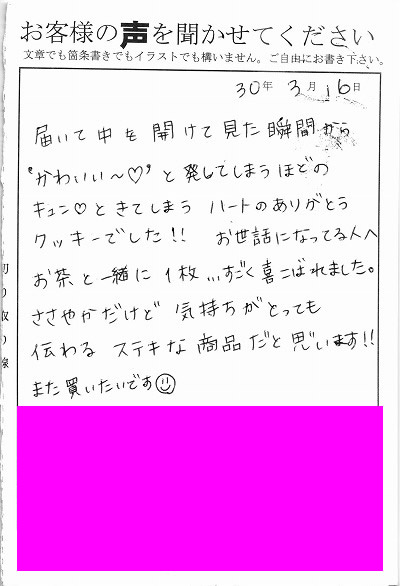 お客様の声を聞かせてください
文章でも箇条書きでもイラストでも構いません。ご自由にお書き下さい。
30年 3月 16日
届いて中を開けて見た瞬間から
"かわいい〜♡"と発してしまうほどの
キュン♡ときてしまう ハートのありがとう
クッキーでした!! お世話になってる人へ
お茶と一緒に1枚...すごく喜こばれました。
ささやかだけど 気持ちがとっても
伝わる ステキな商品だと思います!!
また買いたいです☺
切り取り線